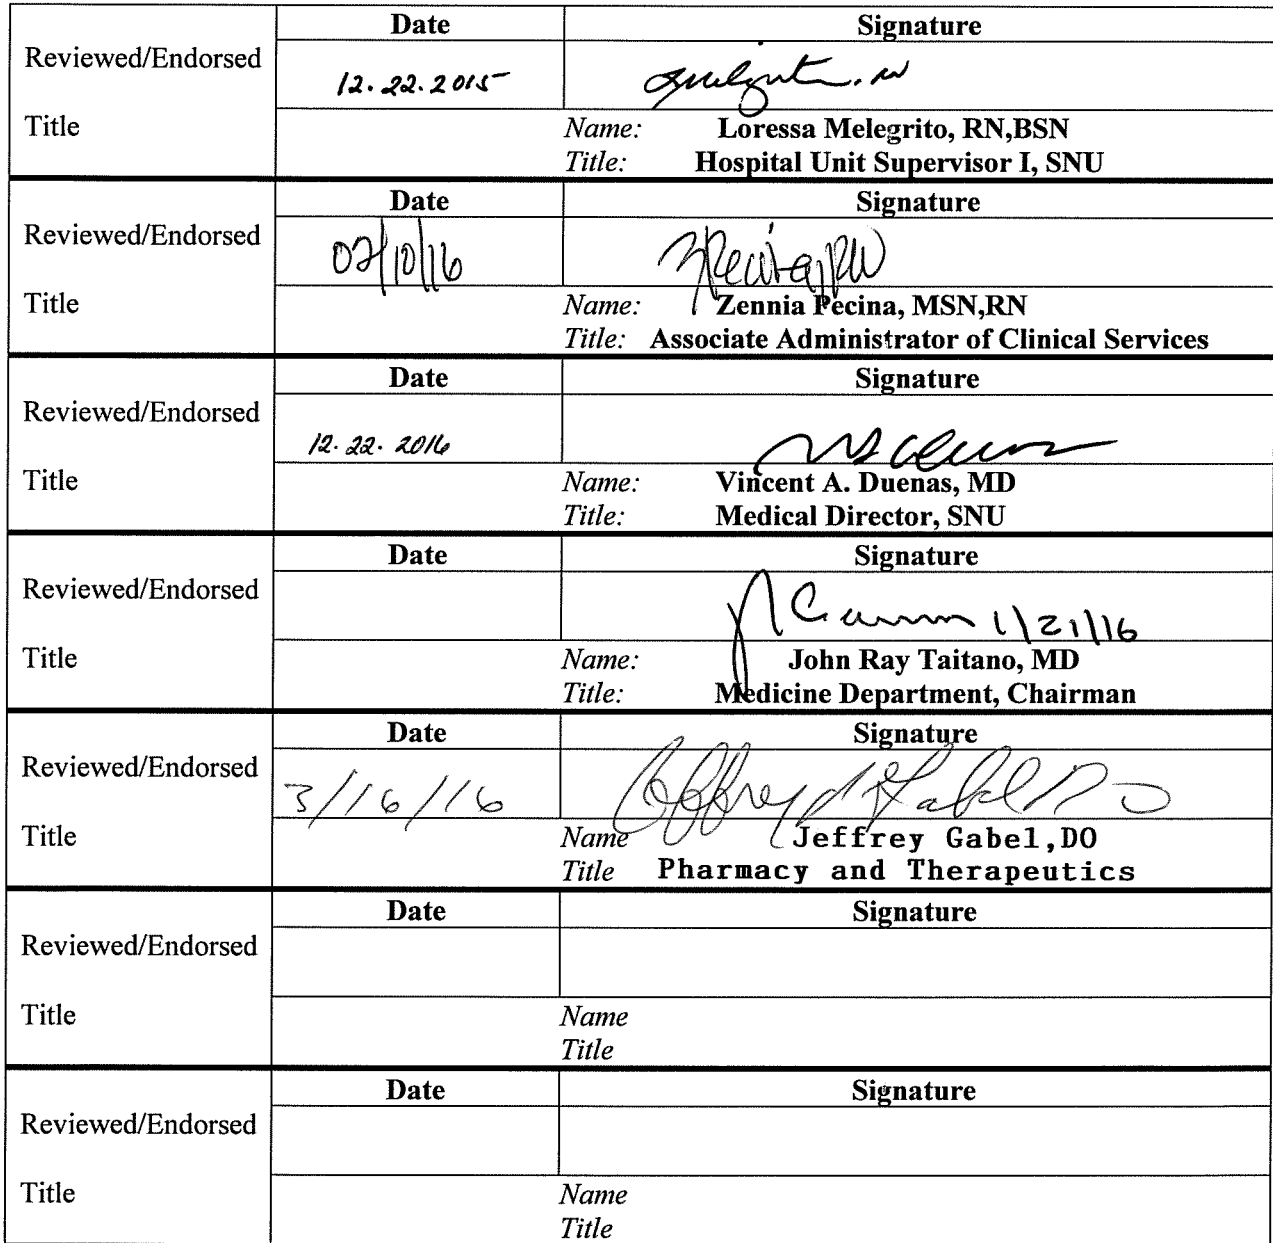 Date Signature
Reviewed/Endorsed
12.22.2015
Title
Name: Loressa Melegrito, RN,BSN
Title: Hospital Unit Supervisor I, SNU
Date Signature
Reviewed/Endorsed
02/10/16 ZPecina, RN
Title
Name: Zennia Pecina, MSN,RN
Title: Associate Administrator of Clinical Services
Date Signature
Reviewed/Endorsed
12.22.2016
Title
Name: Vincent A. Duenas, MD
Title: Medical Director, SNU
Date Signature
Reviewed/Endorsed
1/21/16
Title
Name: John Ray Taitano, MD
Title: Medicine Department, Chairman
Date Signature
Reviewed/Endorsed
3/16/16 Jeffrey Gabel DO
Title
Name Jeffrey Gabel,DO
Title Pharmacy and Therapeutics
Date Signature
Reviewed/Endorsed
Title
Name
Title
Date Signature
Reviewed/Endorsed
Title
Name
Title